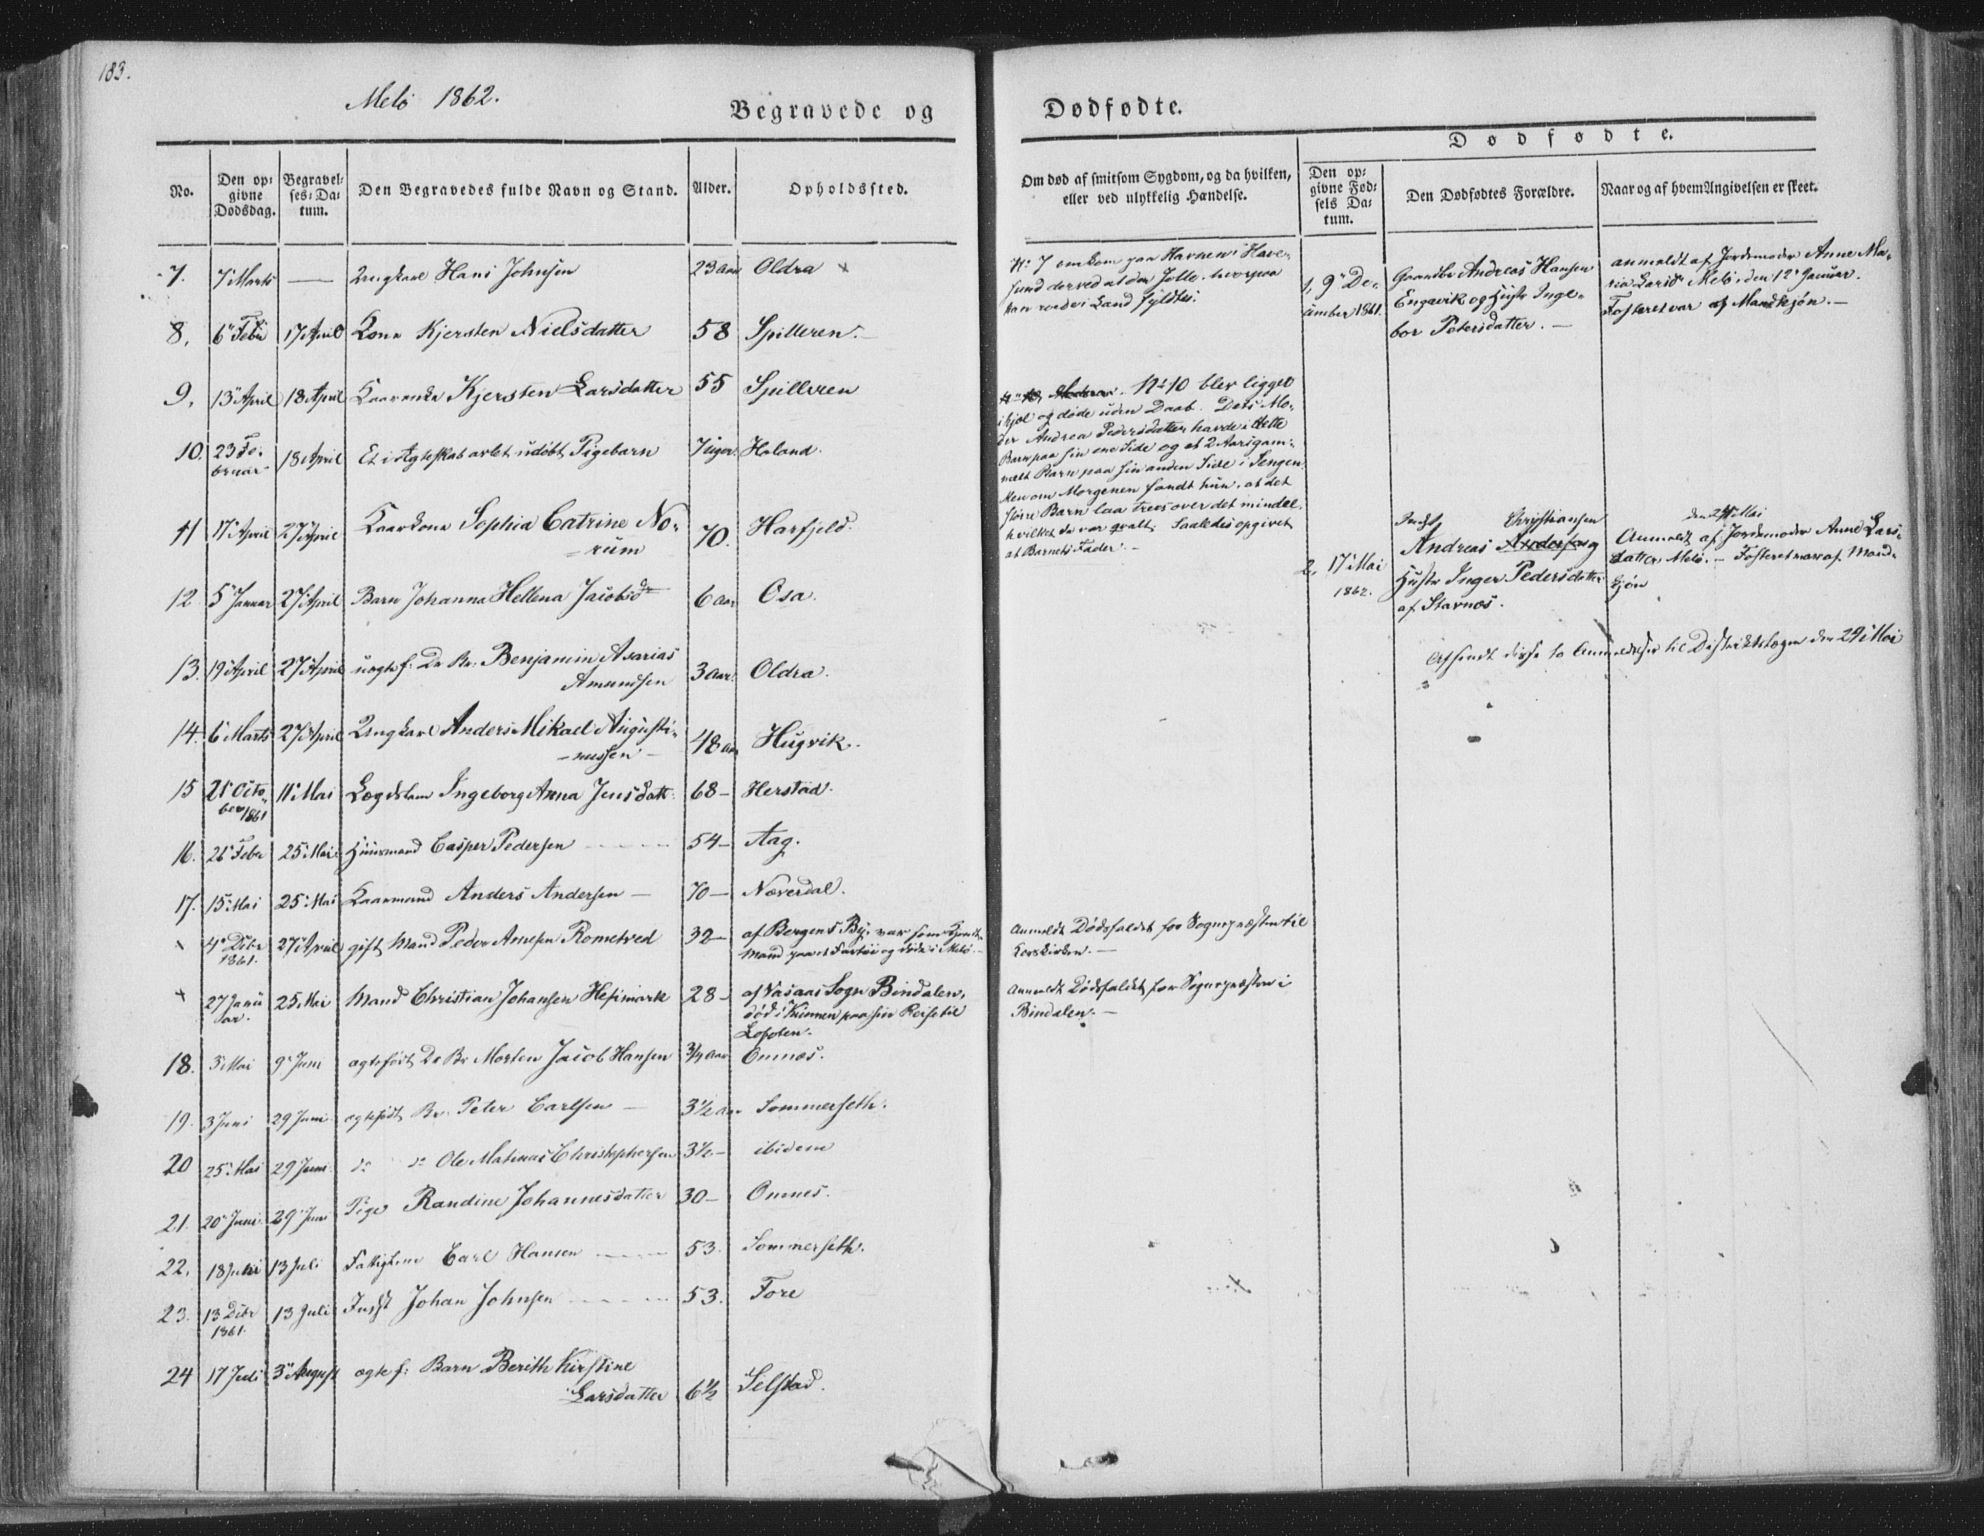 183.
Melö 1862.
Begravede og
No.
Den op-
givne
Dødsdag.
Begravel-
ses-Da-
tum.
Den Begravedes fulde Navn og Stand.
Alder.
Opholdssted.
7. 7 Marts — Ungkarl Hans Johnsen 23 Aar Oldra
8. 6 Febr 17 April Kone Kjersten Nielsdatter 58 Spilderen
9. 13 April 18 April Kjersten Larsdatter 55 Spilderen
10. 23 Fe-
bruar 18 April Et i Ægteskab avlet udøbt Pigebarn 7 Uger Holand.
11 17 April 27 April Kaarkone Sophia Catrine No-
rum 70. Harfjeld.
12 5 Januar 27 April Barn Johanna Hellena Jacobsdr 6 Aar Osa.
13. 19 April 27 April uægtef: Dr. Br: Benjamin Asarias
Amundsen 3 Aar. Oldra.
14. 6 Marts 27 April Ungkarl Anders Mikael Augusti-
nussen 48 Aar Hugvik.
15 21 Octo-
ber 1861 11 Mai Lægdslem Ingeborg Anna Jensdatt: 68 — Herstad.
16. 26 Febr 25 Mai Huusmand Casper Pedersen 54 — Aag.
17. 15 Mai 25 Mai Kaarmand Anders Andersen — 70 — Næverdal.
4 Decbr
1861. 27 April gift Mand Peder Arnesen Rometved 32 — af Bergens By, var som
Mand paa et Fartøi og døde i Melö.
27 Janu-
ar. 25 Mai Mand Christian Johansen Hesimark 28 — af Vasaas Sogn Bindalen,
død i Kinnen paa sin Reise til
Lofoten.
18. 5 Mai 9 Juni ægtefødt Dr Br Morten Jacob Hansen 3/4 Aar Onnæs.
19. 3 Juni 29 Juni ægtefødt Br. Peter Carlsen — 3 1/2 Aar Sommerseth.
20 25 Mai 29 Juni do do Ole Mathias Christophersen 3 1/2 — ibidem
21. 20 Juni 29 Juni Pige Randine Johannesdatter 30 — Onnes.
22. 18 Juni 13 Juli Fattiglem Carl Hansen 53. Sommerseth.
23. 13 Decbr
1861. 13 Juli Indst Johan Johnsen 53. Fore
24 17 Juli 3 August ægtef: Barn Berith Kirstine
Larsdatter 6 1/2 Selstad.
Dødfødte.
Om død af smitsom Sygdom, og da hvilken,
eller ved ulykkelig Hændelse.
Dødfødte.
Den op-
givne Fød-
sels Da-
tum.
Den Dødfødtes Forældre.
Naar og af hvem Angivelsen er skeet.
No 7 omkom paa Havnen i Have-
sund derved at den Jolle, hvorpaa
han roede i Land fyldtes.
No 10 blev ligget
ihjel og døde uden Daab. Dets Mo-
der Andrea Pedersdatter havde i dette
Barn paa sin ene Side og et 2 Aars gam-
melt Barn paa sin anden Side i Sengen
Men om Morgenen fandt hun, at det
større Barn laa tvers over det mindre,
hvilket da var qvalt. Saaledes opgivet
at Barnets Fader. —
Anmeldt Dødsfaldet for Sognepræsten til
Korskirken. —
Anmeldt Dødsfaldet for Sognepræsten i
Bindalen. —
1, 9 De-
cember 1861.
Gaardbr Andreas Hansen
Engavik og Hustr Inge-
bor Petersdatter. —
anmeldt af Jordemoder Anne Ma-
ria Larsdr Melö, den 12 Januar.
Fosteret var af Mandkjøn. —
2, 17 Mai
1862.
Indst Christiansen
Andreas og
Hustr Inger Pedersdatter
af Stavnæs.
den 24 Mai
Anmeldt af Jordemoder Anne Lars-
datter Melö. — Fosteret var af Mand-
kjön
Afsendt disse to Anmeldelser til Districtslægen den 29 Mai